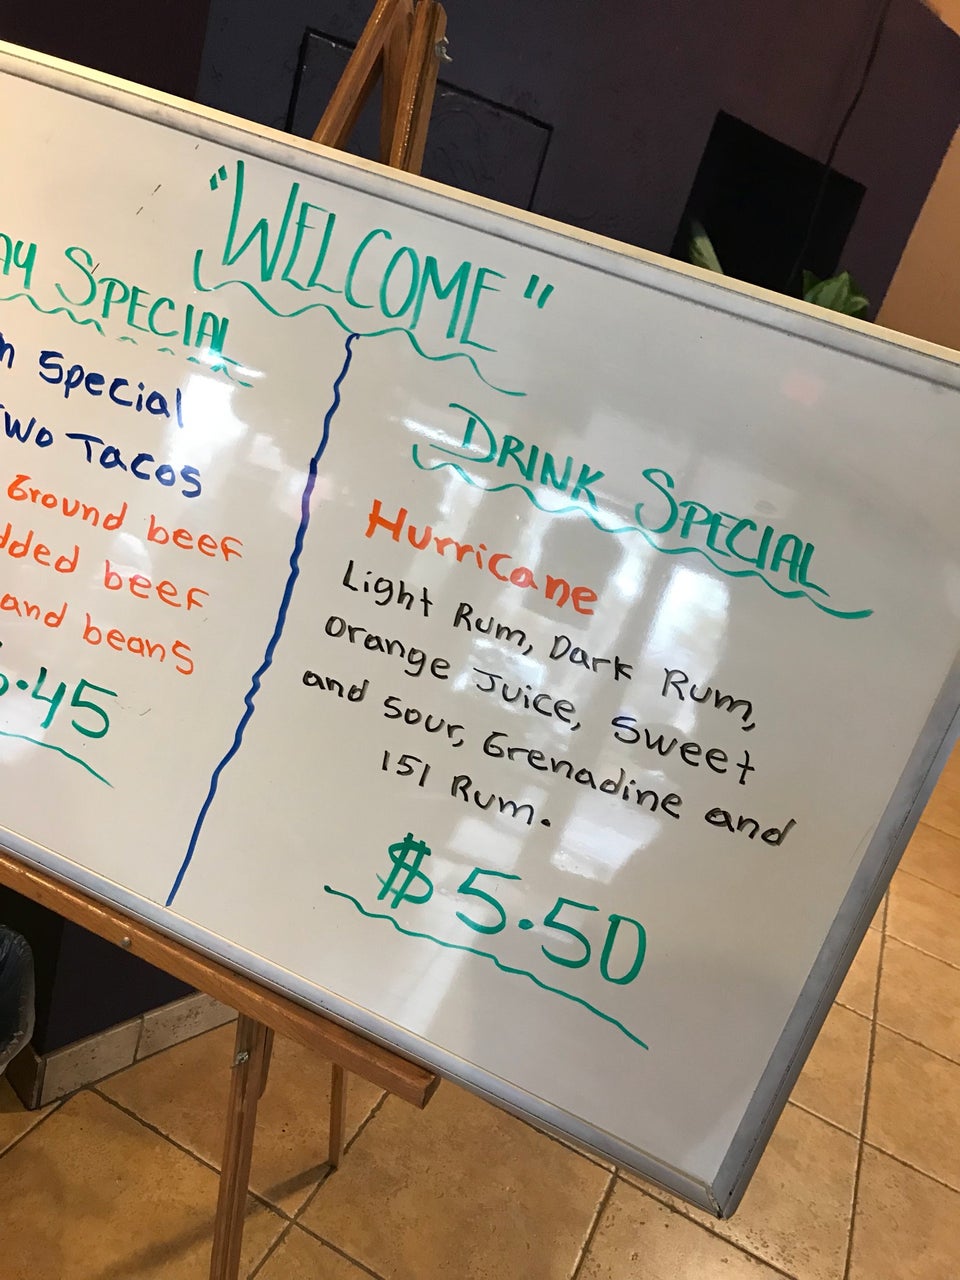 "WELCOME"
AY SPECIAL
Special
Two Tacos
Ground beef
dded beef
and beans
.45
DRINK SPECIAL
Hurricane
Light Rum, Dark Rum,
Orange Juice, Sweet
and Sour, Grenadine and
151 Rum.
$5.50